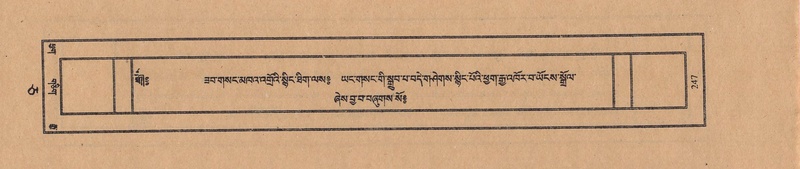 ༄༅།།༔ ཟབ་གསང་མཁའ་འགྲོའི་སྙིང་ཐིག་ལས༔ ཡང་གསང་གི་སྒྲུབ་པ་བདེ་གཤེགས་སྙིང་པོའི་ཕྱག་རྒྱ་འཁོར་བ་ཡོངས་སྒྲོལ་
ཞེས་བྱ་བ་བཞུགས་སོ༔
གཅིག
247